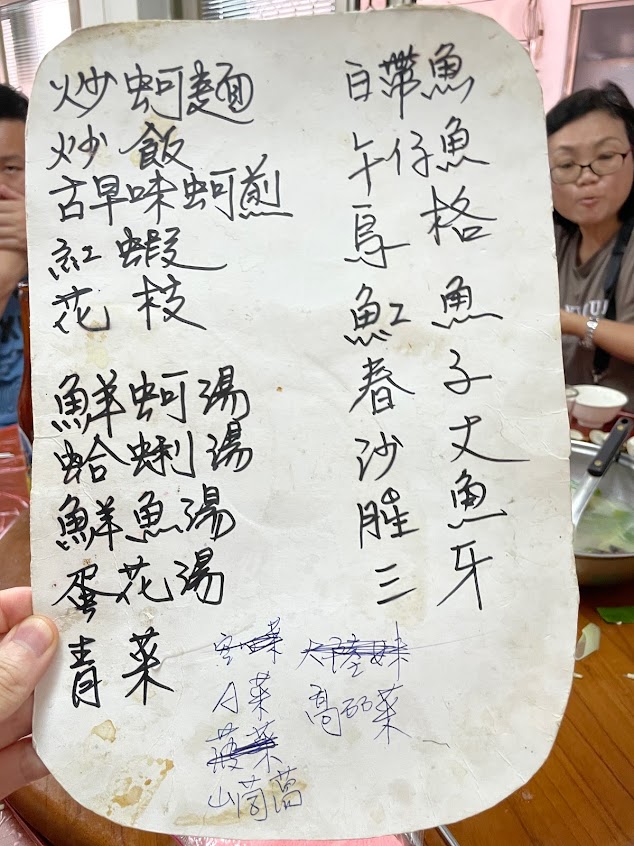 炒蚵麵
炒飯
古早味蚵煎
紅蝦
花枝
鮮蚵湯
蛤蜊湯
鮮魚湯
蛋花湯
青菜
白帶魚
午仔魚
烏格
魟魚
春子
沙丈
魚
三牙
大陸妹
A菜
高丽菜
菠菜
山茼蒿